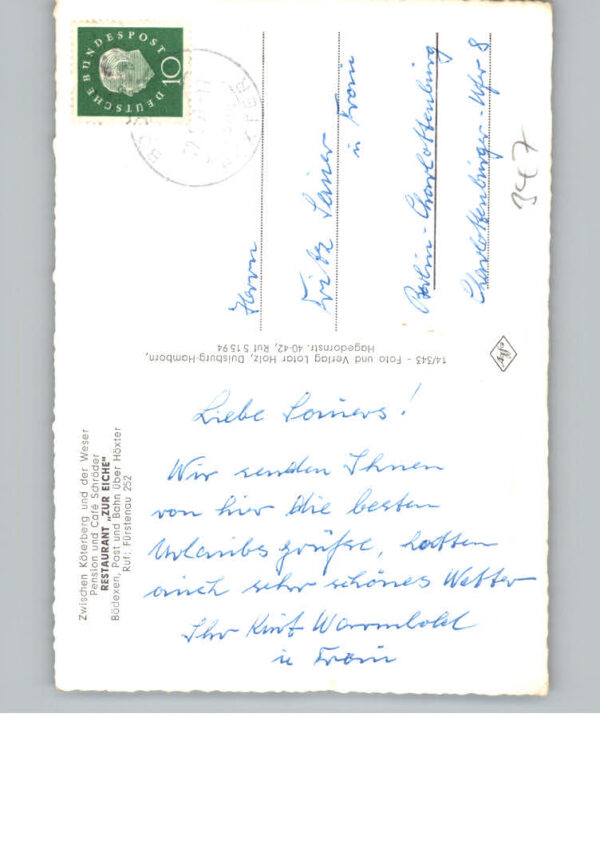 Zwischen Köterberg und der Weser
Pension und Café Schröder
RESTAURANT „ZUR EICHE"
Bödexen, Post und Bahn über Höxter
Ruf: Fürstenau 252
Liebe Sainers!
Wir senden Ihnen
von hier die besten
Urlaubsgrüße, hatten
auch sehr schönes Wetter
Ihr Kurt Warmbold
u Frau
14/343 - Foto und Verlag Lotar Holz, Duisburg-Hamborn,
Hagedornstr. 40-42, Ruf 5 15 94
DEUTSCHE BUNDESPOST
10
Herrn
Fritz Sainer
u Frau
Berlin-Charlottenburg
Charlottenburger-Ufer 8
347